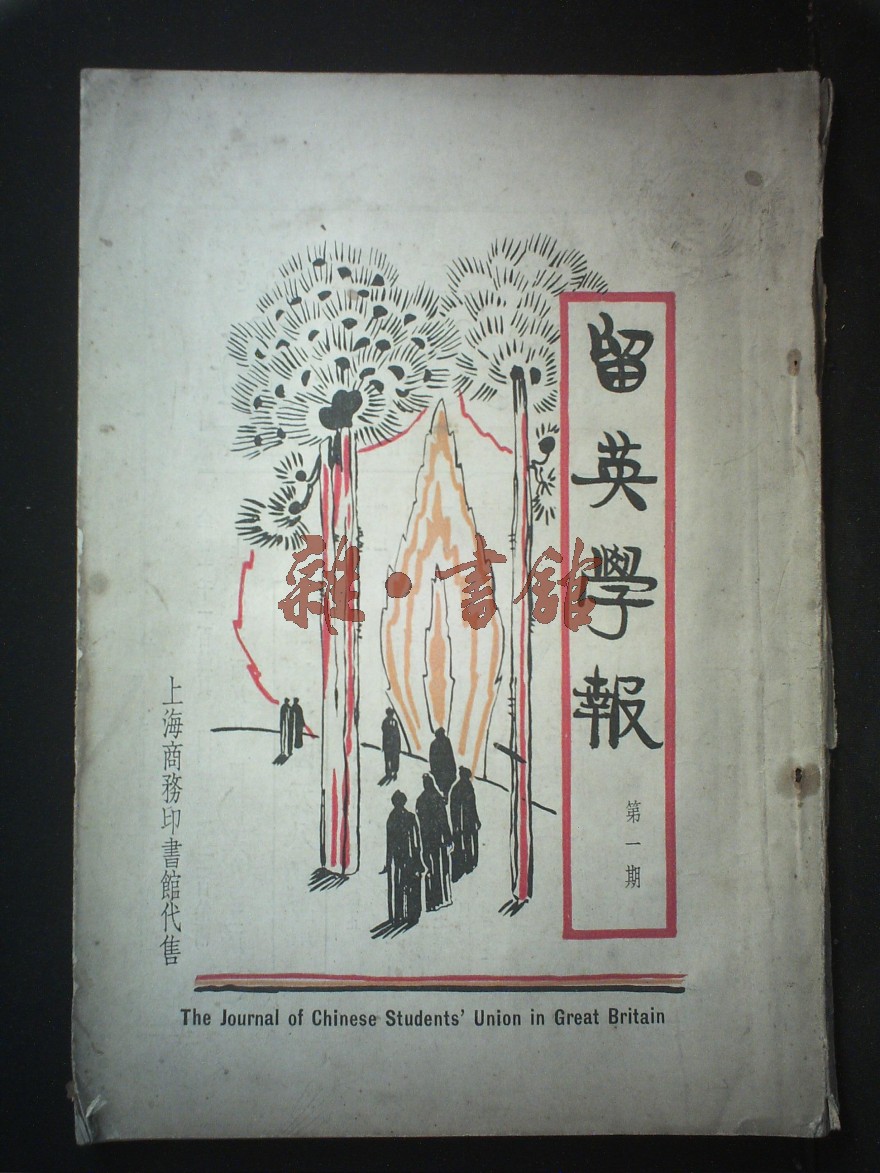 留英學報
第一期
雜·書館
上海商務印書館代售
The Journal of Chinese Students' Union in Great Britain